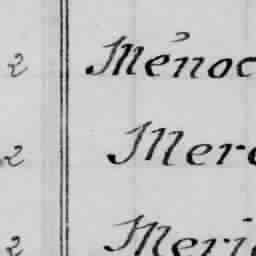 2 Ménoc
2 Mere
2 Meri